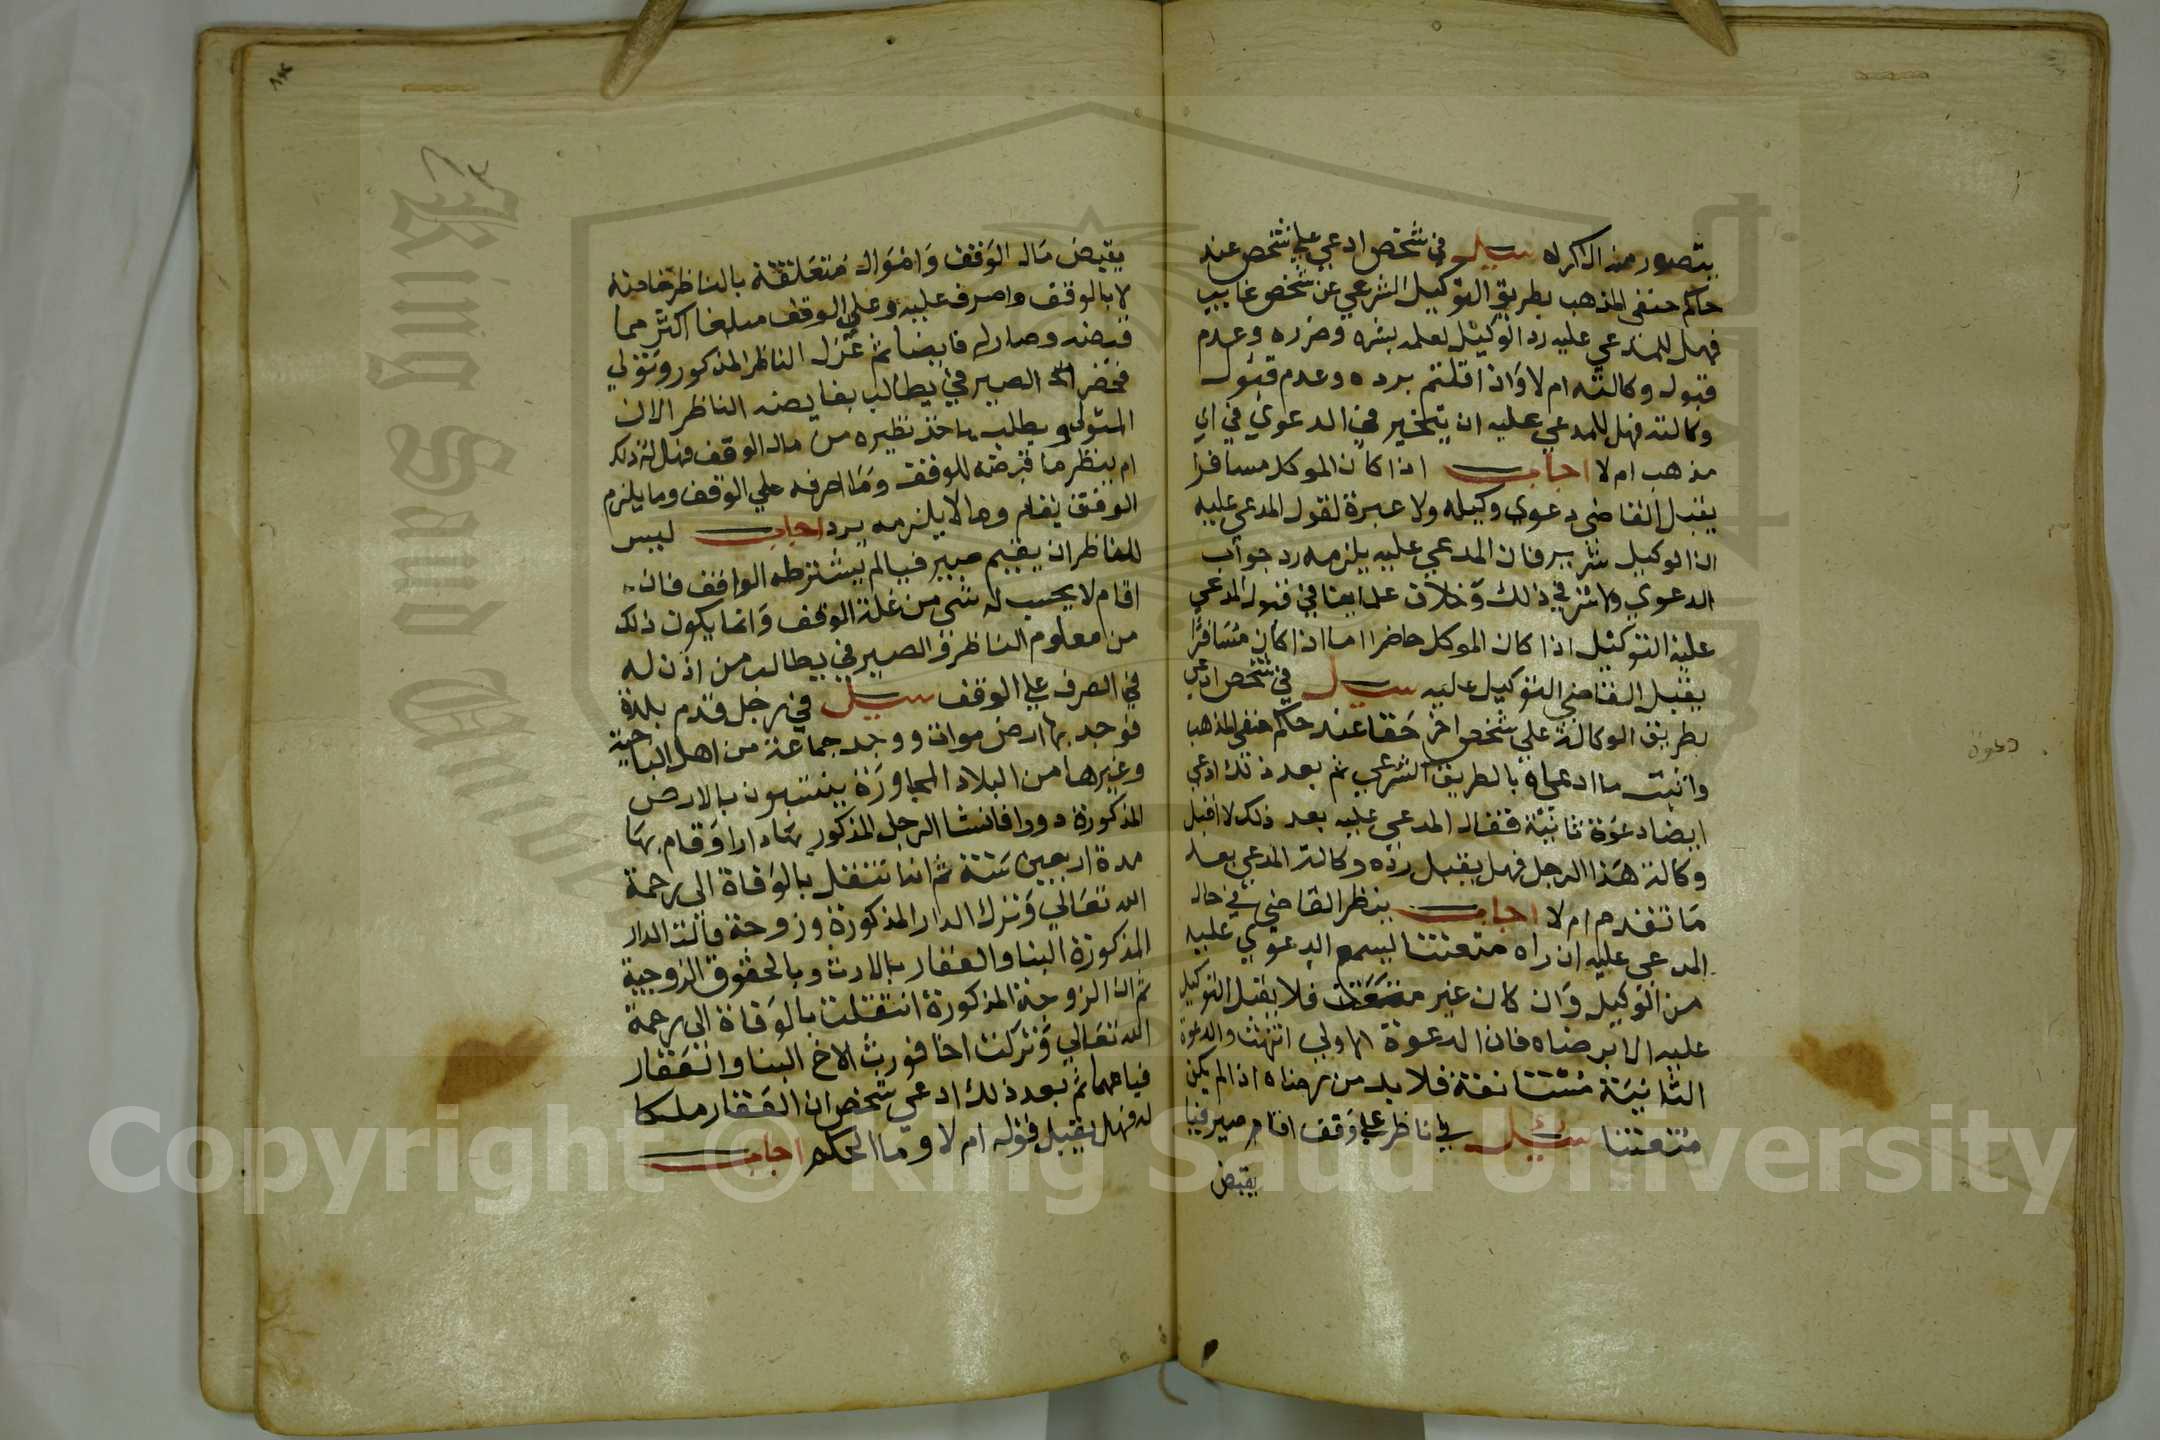 يتصور منه الاكراه سيل في شخص ادعي علي شخص عند
حاكم حنفي المذهب بطريق التوكيل الشرعي عن شخص غايب
فهل للمدعي عليه رد الوكيل لعلمه بشره وضرره وعدم
قبول وكالته ام لا واذا قلتم برده وعدم قبول
وكالته فهل للمدعي عليه ان يتخير في الدعوي في اي
مذهب ام لا اجاب اذا كان الموكل مسافرا
يقبل القاضي دعوي وكيله ولا عبرة لقول المدعي عليه
ان الوكيل شرير فان المدعي عليه يلزمه رد جواب
الدعوي ولا شر في ذلك وخلاف علماينا في قبول المدعي
عليه التوكيل اذا كان الموكل حاضرا اما اذا كان مسافرا
يقبل القاضي التوكيل عليه سيل في شخص ادعي
بطريق الوكالة علي شخص اخر حقا عند حاكم حنفي المذهب
واثبت ما ادعاه بالطريق الشرعي ثم بعد ذلك ادعي
ايضا دعوة ثانية فقال المدعي عليه بعد ذلك لا اقبل
وكالة هذا الرجل فهل يقبل رده وكالة المدعي بعد
ما تقدم ام لا اجاب ينظر القاضي في حال
المدعي عليه ان راه متعنتا ليسمع الدعوي عليه
من الوكيل وان كان غير متعنت فلا يقبل التوكيل
عليه الا برضاه فان الدعوة الاولي انتهت والدعوة
الثانية مستانفة فلا بد من رضاه اذا لم يكن
متعنتا سيل في ناظر علي وقف اقام صيرفيا
يقبض
دعوة
يقبض مال الوقف واموال متعلقة بالناظر خاصة
لا بالوقف واصرف عليه وعلي الوقف مبلغا اكثر مما
قبضه وصار له فايضا ثم عزل الناظر المذكور وتولي
فحضر الصيرفي يطالب بفايضه الناظر الان
المتولي ويطلب ياخذ نظيره من مال الوقف فهل له ذلك
ام ينظر ما قبضه للوقف وما اصرفه علي الوقف وما يلزم
الوقف يقام وما لا يلزمه يرد اجاب ليس
للناظر ان يقيم صيرفيا لم يشترطه الواقف فان
اقام لا يحسب له شي من غلة الوقف وانما يكون ذلك
من معلوم الناظر والصيرفي يطالب من اذن له
في الصرف علي الوقف سيل في رجل قدم بلدة
فوجد بها ارض موات ووجد جماعة من اهل الناحية
وغيرها من البلاد المجاورة ينتبهون بالارض
المذكورة دورا فانشا الرجل المذكور بها دارا واقام بها
مدة اربعين سنة ثم انه انتقل بالوفاة الي رحمة
الله تعالي وترك الدار المذكورة وزوجة فالت الدار
المذكورة البنا والعقار بالارث وبالحقوق الزوجية
ثم ان الزوجة المذكورة انتقلت بالوفاة الي رحمة
الله تعالي وتركت اخا فورث الاخ البنا والعقار
ثم بعد ذلك ادعي شخص ان العقار ملكا
له فهل يقبل قوله ام لا وما الحكم اجاب
Copyright © King Saud University
King Saud University